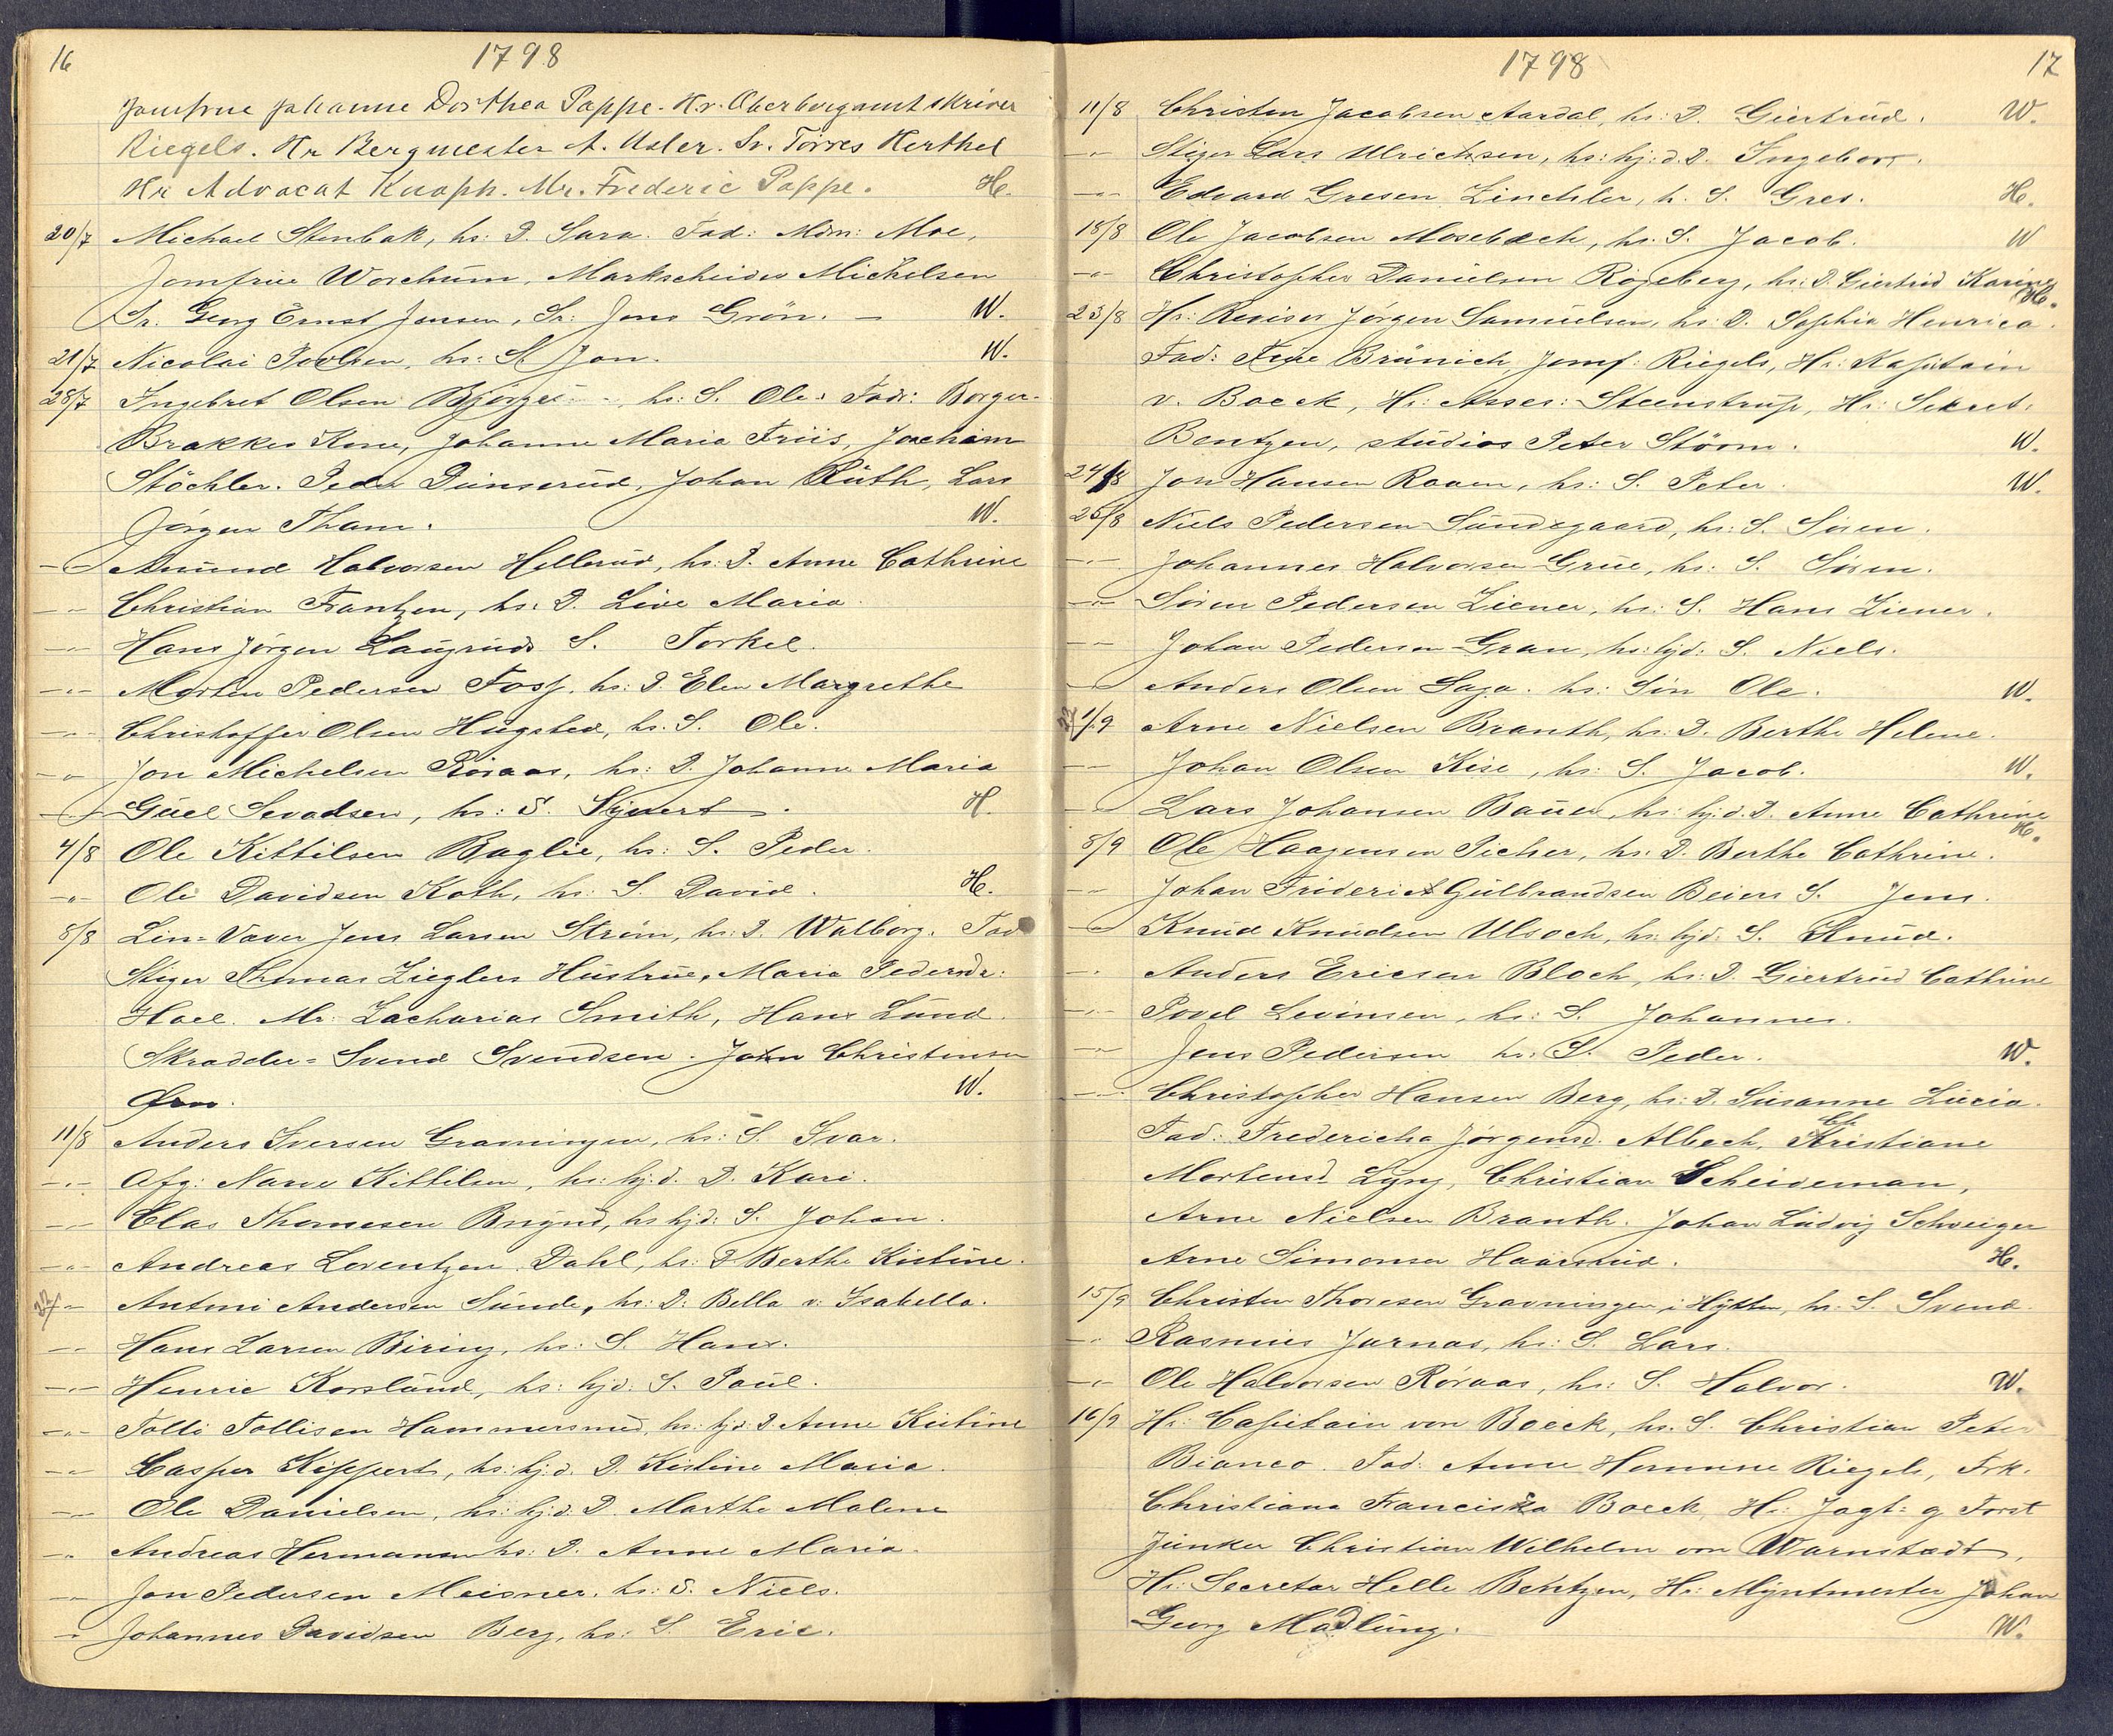 16 1798
Jomfrue Johanne Dorthea Poppe. Hr. Oberbergamtskriver
Riegels. Hr Bergmester A. Usler. Sr. Torres Herthel
Hr Advocat Knoph. Mr. Frederic Poppe. H.
20/7 Michael Stenbak, hs: D. Sara. Fad: Mdm: Moe,
Jomfrue Worchum, Markscheider Michelsen
Sr. Georg Ernst Jensen, Sr: Jens Grön. — W.
21/7 Nicolai Povlsen, hs: S. Jon. W.
28/7 Ingebret Olsen hs: S. Ole. Fadr: Borger-
Brakkes Kone, Johanne Maria Friis, Joachim
Stöchler. Peder Dunserud, Johan Rüth, Lars
Jörgen Tham. W.
-"- Amund Halvorsen Hellerud, hs: D. Anne Cathrine
-"- Christian Frantzen, hs: D. Live Maria.
-"- Hans Jörgen Laugruds S. Torkel.
-"- Morten Pedersen Foss. hs: D. Elen Margrethe
-"- Christoffer Olsen Hugsted, hs: S. Ole.
-"- Jon Michelsen Röraas, hs: D. Johanne Maria
-"- Guel Sevadsen, hs: S. Syvert. H.
4/8 Ole Kittilsen Baglie, hs: S. Peder.
-"- Ole Davidsen Koth, hs: S. David. H.
8/8 Lin=Væver Jens Larsen Strøm, hs: D. Walborg. Fad
Stiger Thomas Zieglers Hustrue, Maria Pedersdr:
Hoel. Mr: Zacharias Smith, Hans Lund.
Skrædder=Svend Svendsen. John Christensen
W.
11/8 Anders Iversen Gravningen, hs: S. Ivar.
-"- Afg: Narve Kittilsen, hs: hj.d. D. Kari.
-"- Clas Thomesen hs hjd: S. Johan.
-"- Andreas Lorentzen Dahl, hs: D Berthe Kistine.
-"- Antoni Andersen Sunde, hs: D: Bella v: Isabella.
-"- Hans Larsen Biring, hs: S. Hans.
-"- Henric Korslund, hs: hjd: S. Paul.
-"- Tolli Tollisen Hammersmed, hs: hjd: D. Anne Kistine
-"- Casper Kippert, hs: hj:d. D. Kistine Maria.
-"- Ole Danielsen, hs: hj:d. D. Marthe Malene
-"- Andreas Hermansen hs: D. Anne Maria.
-"- Jon Pedersen Meisner. hs: S. Niels.
-"- Johannes Davidsen Berg, hs: S. Eric.
1798 17
11/8 Christen Jacobsen Aardal, hs: D. Giertrud. W.
-"- Stiger Lars Ulrichsen, hs: hj:d. D. Ingeborg.
-"- Edvard Gresen Zinchler, h. S. Gres. H.
18/8 Ole Jacobsen Mosebæch, hs: S. Jacob. W
-"- Christopher Danielsen Rögeberg, hs: D. Giertrud Karine
H.
23/8 Hr: Revisor Jörgen Samuelsen, hs: D. Sophia Henrica.
Fad: Brünich, Jomf: Riegels, Hr: Kapitain
v. Boeck, Hr: Asses: Steenstrup, Hr: Sekret.
Bentzen, studios Peter Störm. W.
24/8 Jon Hansen Raaen, hs: S. Peter. W.
26/8 Niels Pedersen Sundsgaard, hs: S. Sören.
-"- Johannes Halvorsen Grue, hs: S. Sören.
-"- Sören Pedersen Ziener, hs: S. Hans Ziener.
-"- Johan Pedersen Gran, hs: hjd: S. Niels.
-"- Anders Olsen Saga. hs: Sön Ole. W.
1/9 Arne Nielsen Branth, hs: D. Berthe Helene.
-"- Johan Olsen Kise, hs: S. Jacob. W.
-"- Lars Johansen Bauer, hs: hj:d. D. Anne Cathrine
H.
8/9 Ole Haagensen Picher, hs: D. Berthe Cathrine.
-"- Johan Frideric Gulbrandsen Beiers S. Jens.
-"- Knud Knudsen Ulsoch, hs: hjd: S. Knud.
-"- Anders Ericsen Bloch, hs: D. Giertrud Cathrine
-"- Povel Levinsen, hs: S. Johannes.
-"- Jens Pedersen hs: S. Peder. W.
-"- Christopher Hansen Berg, hs: D. Susanne Lucia.
Fad: Fredericha Jörgensd. Albech, Christiane
Mortensd Lyng, Christian Scheideman,
Arne Nielsen Branth. Johan Ludvig Schweiger
Arne Simonsen Haarstud. H.
15/9 Christen Thoresen Gravningen i Hytten, hs: S. Svend.
-"- Rasmus Jarnas, hs: S. Lars.
-"- Ole Halvorsen Röraas, hs: S. Halvor. W.
16/9 Hr: Capitain von Boeck, hs. S. Christian Peter
Bianco. Fad: Anne Hermine Riegels, Frk.
Christiana Franciska Boeck, Hr: Jagt= g Forst
Junker Christian Wilhelm von Warnstædt,
Hr: Secretær Helle Bentzen, Hr: Myntmester Johan
Georg Madlung. W.